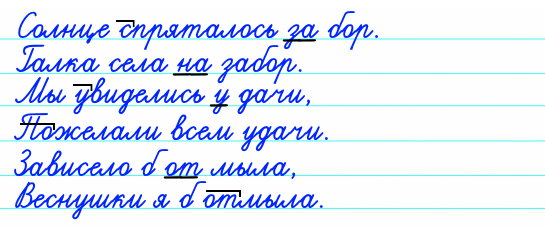 Солнце спряталось за бор.
Галка села на забор.
Мы увиделись у дачи,
Пожелали всем удачи.
Зависело б от мыла,
Веснушки я б отмыла.